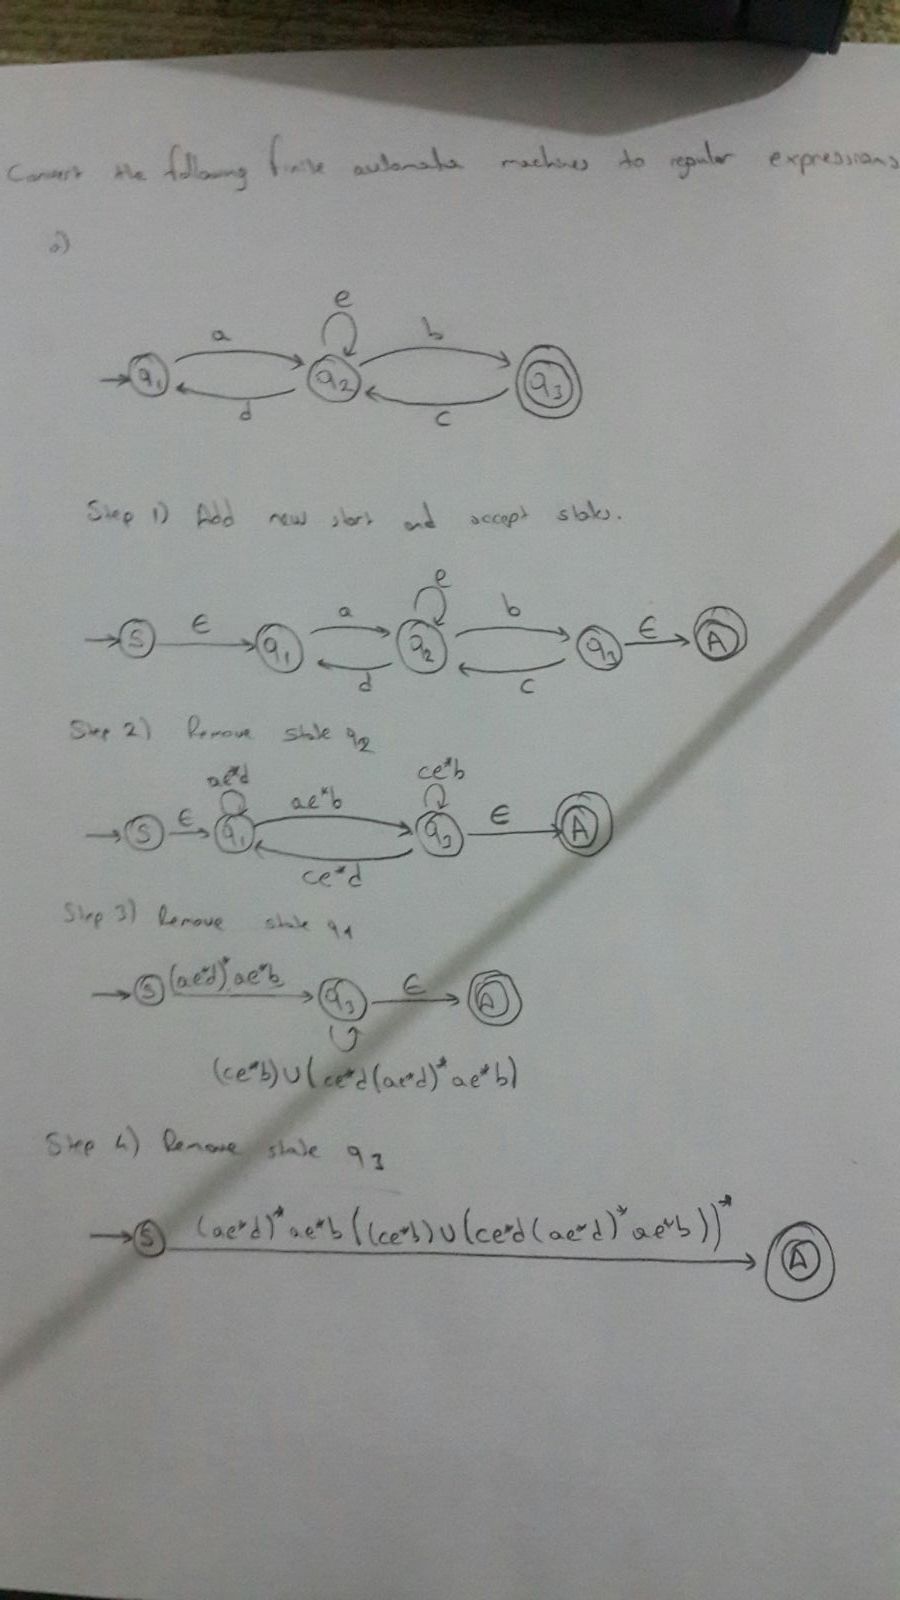 Convert the following finite automata machines to regular expressions
a)
e
a b
q1 q2 q3
d c
Step 1) Add new start and accept states.
e
ϵ a b ϵ
S q1 q2 q3 A
d c
Step 2) Remove state q2
ae*d ce*b
ϵ ae*b ϵ
S q1 q3 A
ce*d
Step 3) Remove state q1
S (ae*d)*ae*b q3 ϵ A
(ce*b)∪(ce*d(ae*d)*ae*b)
Step 4) Remove state q3
S (ae*d)*ae*b((ce*b)∪(ce*d(ae*d)*ae*b))* A